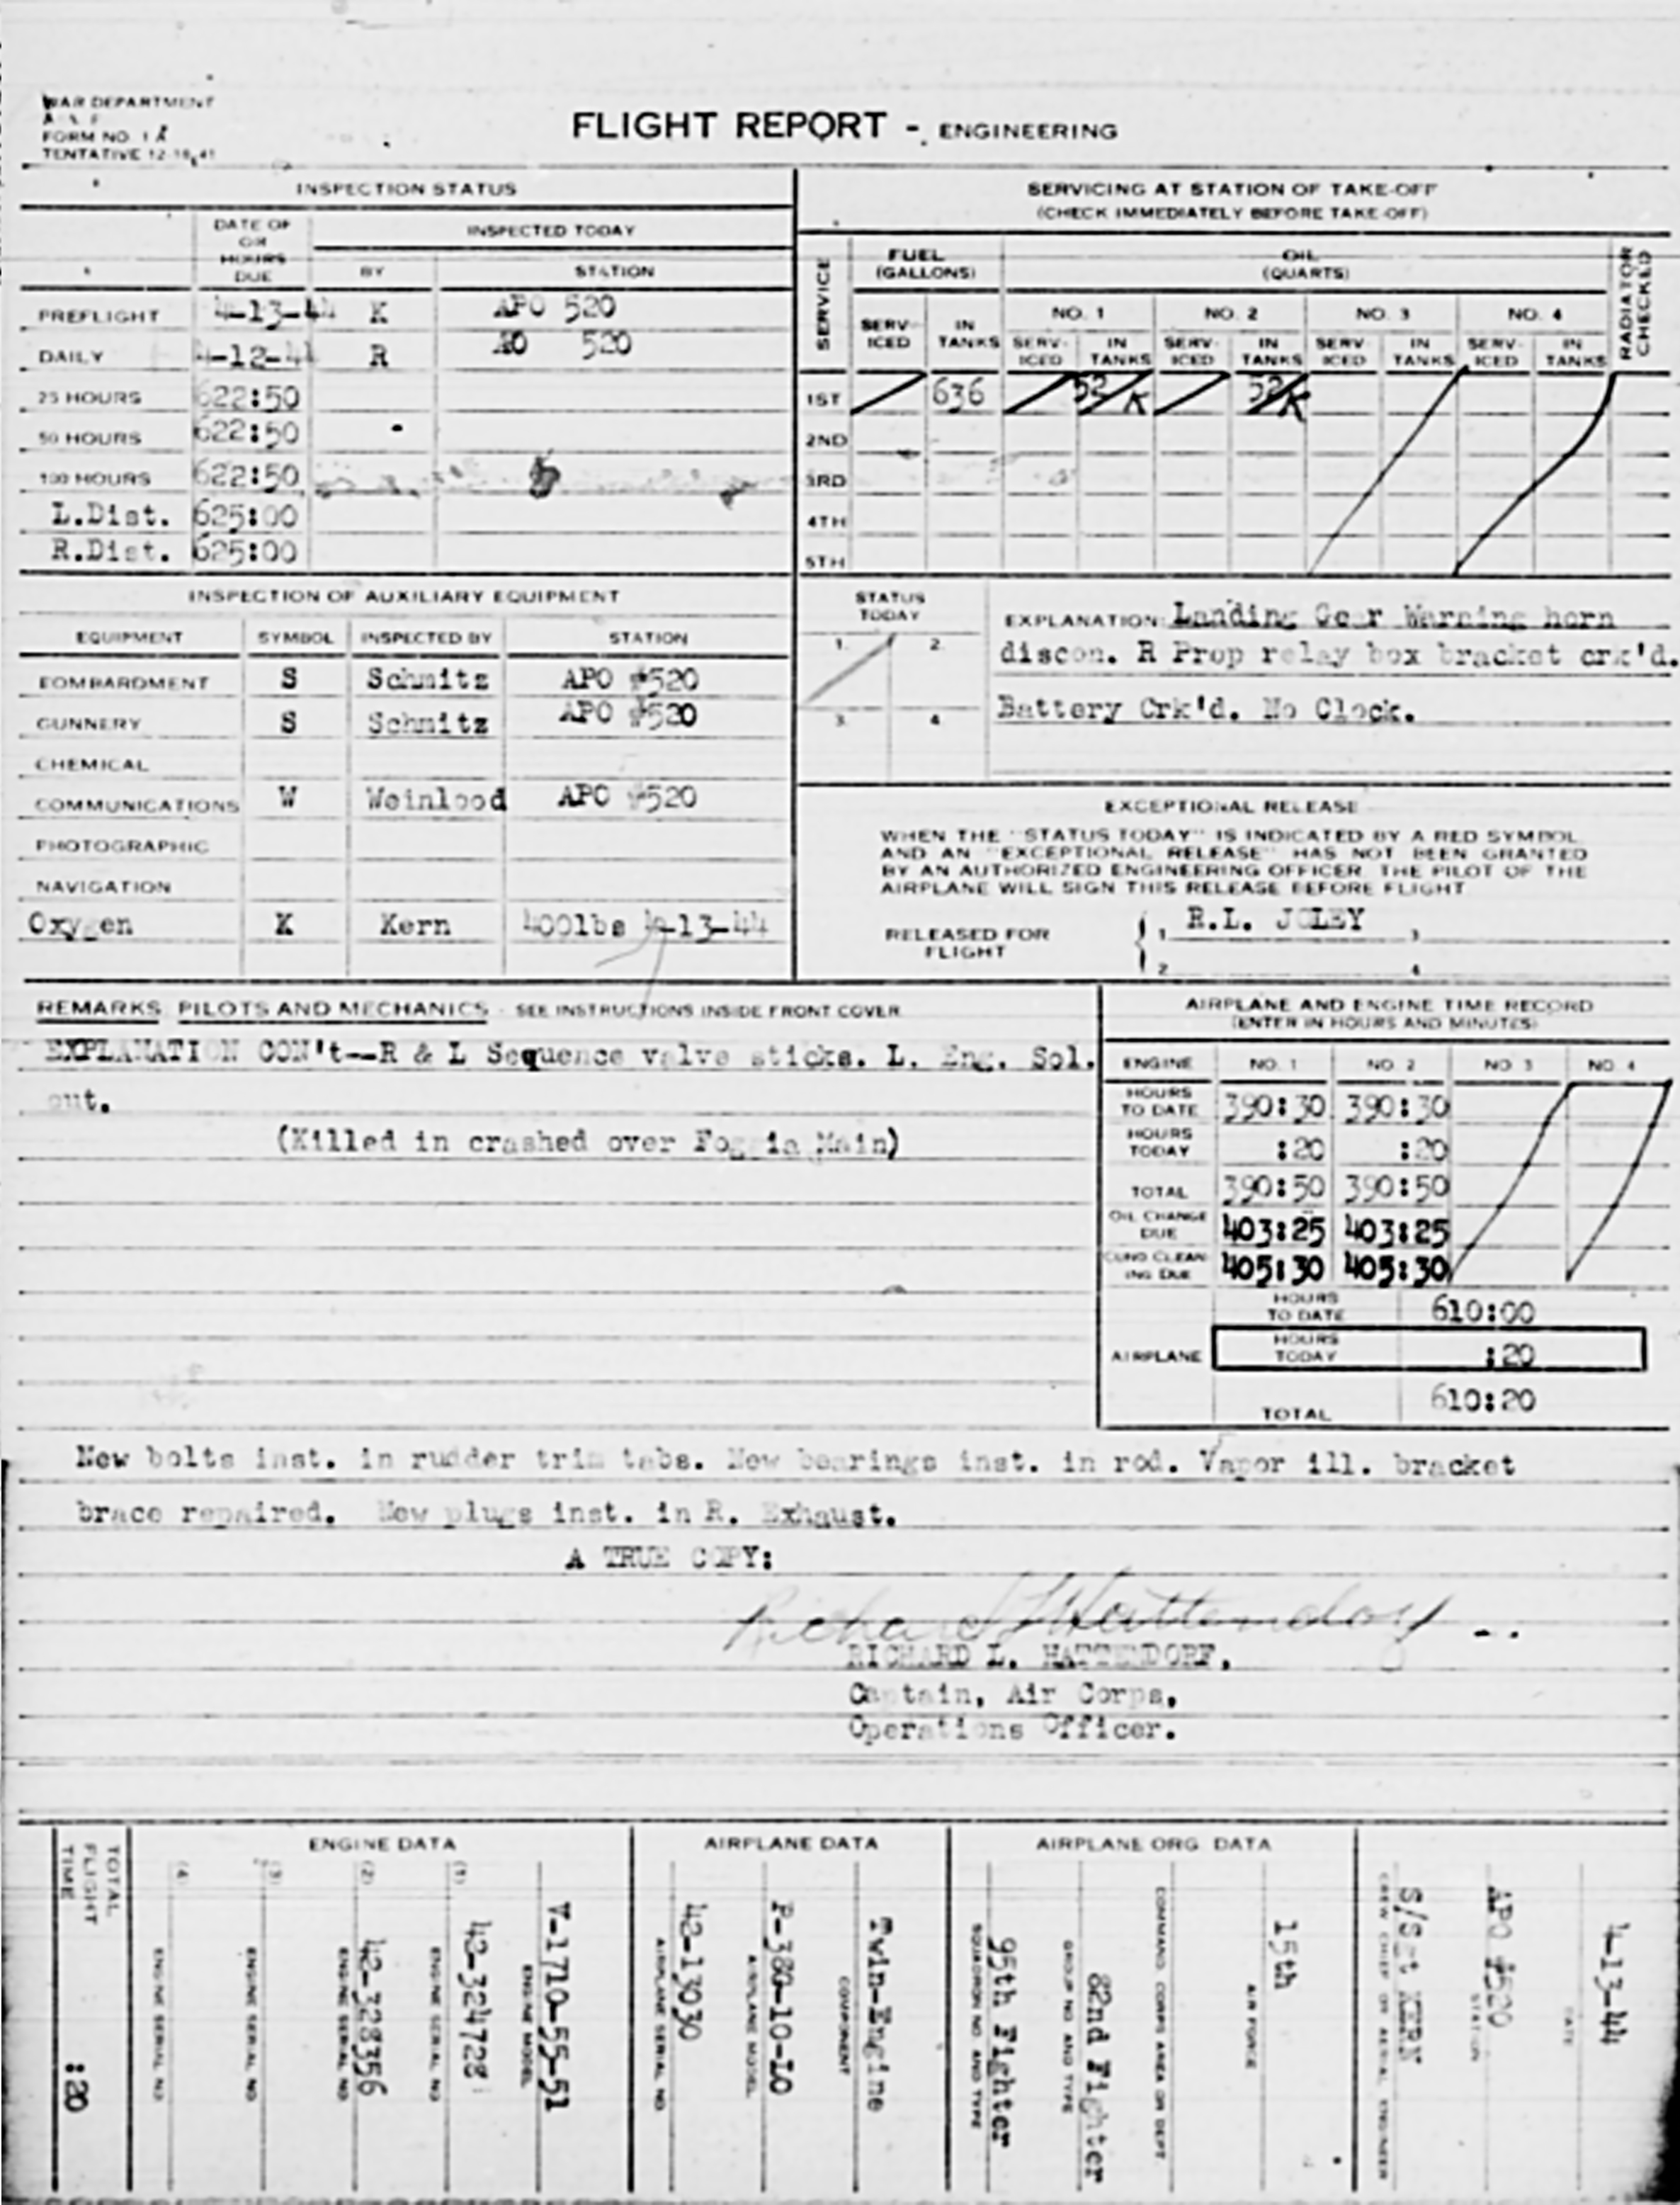 WAR DEPARTMENT
A. A. F.
FORM NO. 1 A
TENTATIVE 12-18-41
FLIGHT REPORT - ENGINEERING
INSPECTION STATUS
DATE OF OR HOURS DUE
INSPECTED TODAY
BY STATION
PREFLIGHT 4-13-44 K APO 520
DAILY 4-12-44 R 520
25 HOURS 622:50
50 HOURS 622:50
100 HOURS 622:50
L.Dist. 625:00
R.Dist. 625:00
SERVICING AT STATION OF TAKE-OFF
(CHECK IMMEDIATELY BEFORE TAKE-OFF)
SERVICE
FUEL (GALLONS)
OIL (QUARTS)
RADIATOR CHECKED
NO. 1 NO. 2 NO. 3 NO. 4
SERVICED IN TANKS SERVICED IN TANKS SERVICED IN TANKS SERVICED IN TANKS SERVICED IN TANKS
1ST 636 52/K 52/K
2ND
3RD
4TH
5TH
INSPECTION OF AUXILIARY EQUIPMENT
EQUIPMENT SYMBOL INSPECTED BY STATION
BOMBARDMENT S Schmitz APO #520
GUNNERY S Schmitz APO #520
CHEMICAL
COMMUNICATIONS W Weinlood APO #520
PHOTOGRAPHIC
NAVIGATION
Oxygen K Kern 400lbs 4-13-44
STATUS TODAY
1. 2.
3. 4.
EXPLANATION: Landing Gear Warning horn
discon. R Prop relay box bracket crk'd.
Battery Crk'd. No Clock.
EXCEPTIONAL RELEASE
WHEN THE "STATUS TODAY" IS INDICATED BY A RED SYMBOL
AND AN "EXCEPTIONAL RELEASE" HAS NOT BEEN GRANTED
BY AN AUTHORIZED ENGINEERING OFFICER, THE PILOT OF THE
AIRPLANE WILL SIGN THIS RELEASE BEFORE FLIGHT
RELEASED FOR FLIGHT
1. R.L. JOLEY 3.
2. 4.
REMARKS PILOTS AND MECHANICS - SEE INSTRUCTIONS INSIDE FRONT COVER
EXPLANATION CON't--R & L Sequence valve sticks. L. Eng. Sol.
out.
(Killed in crashed over Foggia Main)
AIRPLANE AND ENGINE TIME RECORD
(ENTER IN HOURS AND MINUTES)
ENGINE NO. 1 NO. 2 NO. 3 NO. 4
HOURS TO DATE 390:30 390:30
HOURS TODAY :20 :20
TOTAL 390:50 390:50
OIL CHANGE DUE 403:25 403:25
CUNO CLEANING DUE 405:30 405:30
AIRPLANE
HOURS TO DATE 610:00
HOURS TODAY :20
TOTAL 610:20
New bolts inst. in rudder trim tabs. New bearings inst. in rod. Vapor ill. bracket
brace repaired. New plugs inst. in R. Exhaust.
A TRUE COPY:
Richard L Hattendorf
RICHARD L. HATTENDORF,
Captain, Air Corps,
Operations Officer.
4-13-44
DATE
APO #520
STATION
S/Sgt KERN
CREW CHIEF OR AERIAL ENGINEER
AIRPLANE ORG. DATA
15th
AIR FORCE
COMMAND, CORPS AREA OR DEPT
82nd Fighter
GROUP NO. AND TYPE
95th Fighter
SQUADRON NO. AND TYPE
AIRPLANE DATA
Twin-Engine
COMPONENT
P-38G-10-LO
AIRPLANE MODEL
42-13030
AIRPLANE SERIAL NO.
ENGINE DATA
V-1710-55-51
ENGINE MODEL
(1) 42-324728
ENGINE SERIAL NO.
(2) 42-328356
ENGINE SERIAL NO.
(3)
ENGINE SERIAL NO.
(4)
ENGINE SERIAL NO.
TOTAL FLIGHT TIME :20